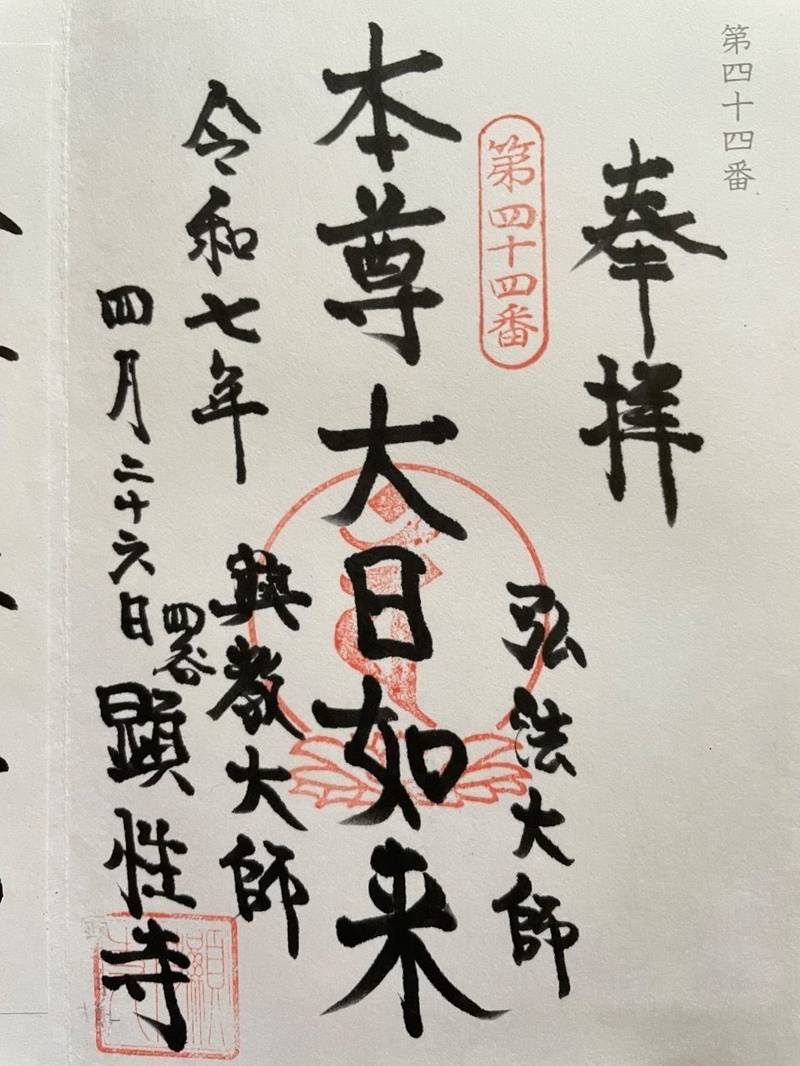 第四十四番
奉拝
第四十四番
弘法大師
本尊大日如来
興教大師
令和七年
四月二十六日
四谷
顕性寺